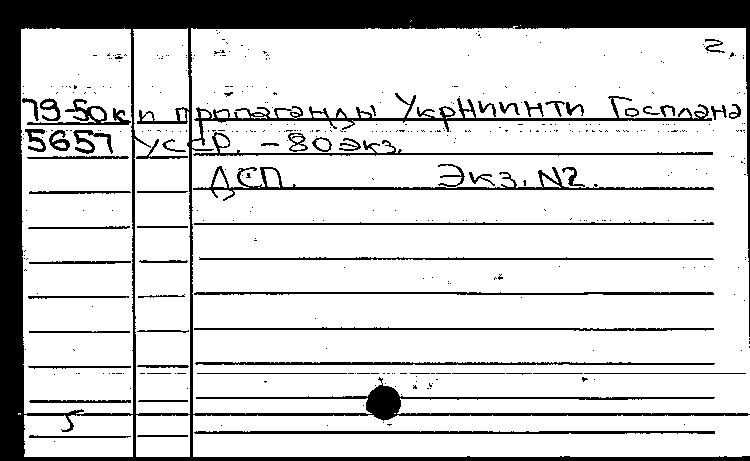 2.
79-50к и пропаганды УкрНИИНТИ Госплана
5657 УССР. – 80 экз.
ДСП. Экз. N2.
5